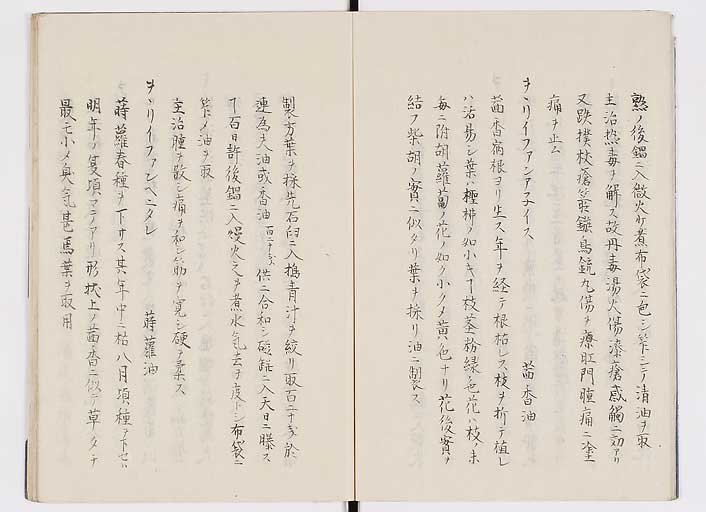 熟ノ後鐲ニ入緩火ヲ煮布袋ニ包シ笮シテ清油ヲ取
主治热毒ヲ解ス故丹毒湯火傷漆瘡感觸ニ効アリ
又跌撲杖瘡箭鏃鳥銃丸傷ヲ療肛門腫痛ニ塗
痛ヲ止ム
ヲヽリイファンアネイス 茴香油
茴香宿根ヨリ生ス年ヲ経テ根枯レス枝ヲ折テ植レ
ハ活易シ葉ハ檉柳ノ如小キ丁枝茎粉緑色花ハ枝ノ末
毎ニ附胡蘿蔔ノ花ノ如ク小クメ黄色ナリ花後實ヲ
結フ柴胡ノ實ニ似タリ葉ヲ採リ油ニ製ス
製方葉ヲ採先石臼ニ入搗青汁ヲ絞リ取百二十戔於
連為夫油或香油百二十戔供ニ合和シ磁䍃ニ入天日ニ曝ス
丁百日許後鐲ニ入慢火之ヲ煮水氣去ヲ度トシ布袋ニ
笮メ油ヲ取
主治腫ヲ散シ痛ヲ和シ筋ヲ寛シ硬ヲ柔ス
ヲヽリイファンペニタレ 蒔蘿油
蒔蘿春種ヲ下サス其年中ニ枯八月頃種ヲ下セハ
明年ノ夏項マテアリ形状上ノ茴香ニ似テ草
最モ小メ臭氣甚シ葉ヲ取用